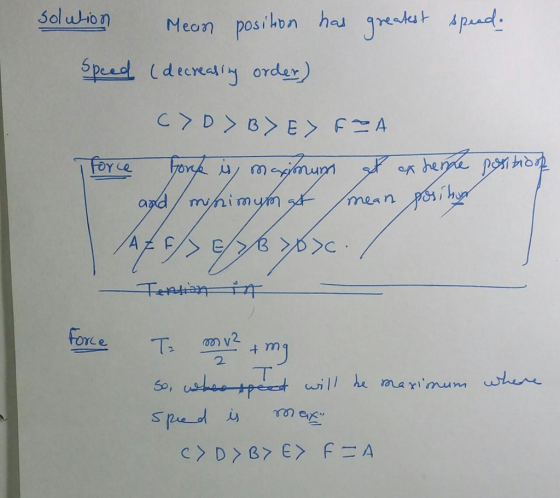 Solution Mean position has greatest speed.
Speed (decreasing order)
C > D > B > E > F = A
Force Force is maximum at extreme position
and minimum at mean position
A = F > E > B > D > C.
Tension in
Force T = mv²/2 + mg
so, when speed T will be maximum where
speed is max.
C > D > B > E > F = A